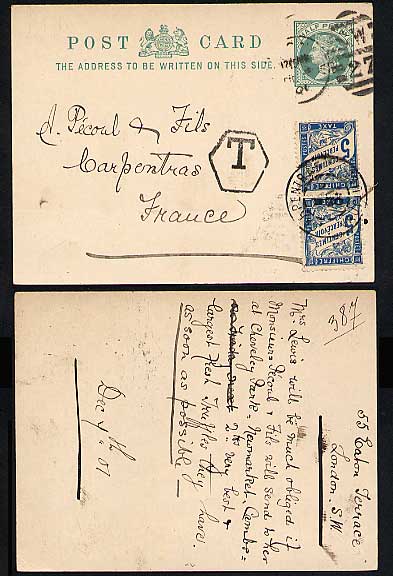 POST CARD
THE ADDRESS TO BE WRITTEN ON THIS SIDE.
HALF PENNY
27
A. Pécoul & Fils
Carpentras
France
T
5
CENTIMES
A PERCEVOIR
CHIFFRE
TAXE
5
CENTIMES
A PERCEVOIR
CHIFFRE
387
55 Eaton Terrace
London. S.W.
Mrs Lewis will be much obliged if
Monsieur Pecoul & Fils will send to her
at Cheveley Park. Newmarket. Cambs =
2 kos very best &
largest fresh Truffles they have.
as soon as possible.
Dec 4th 01